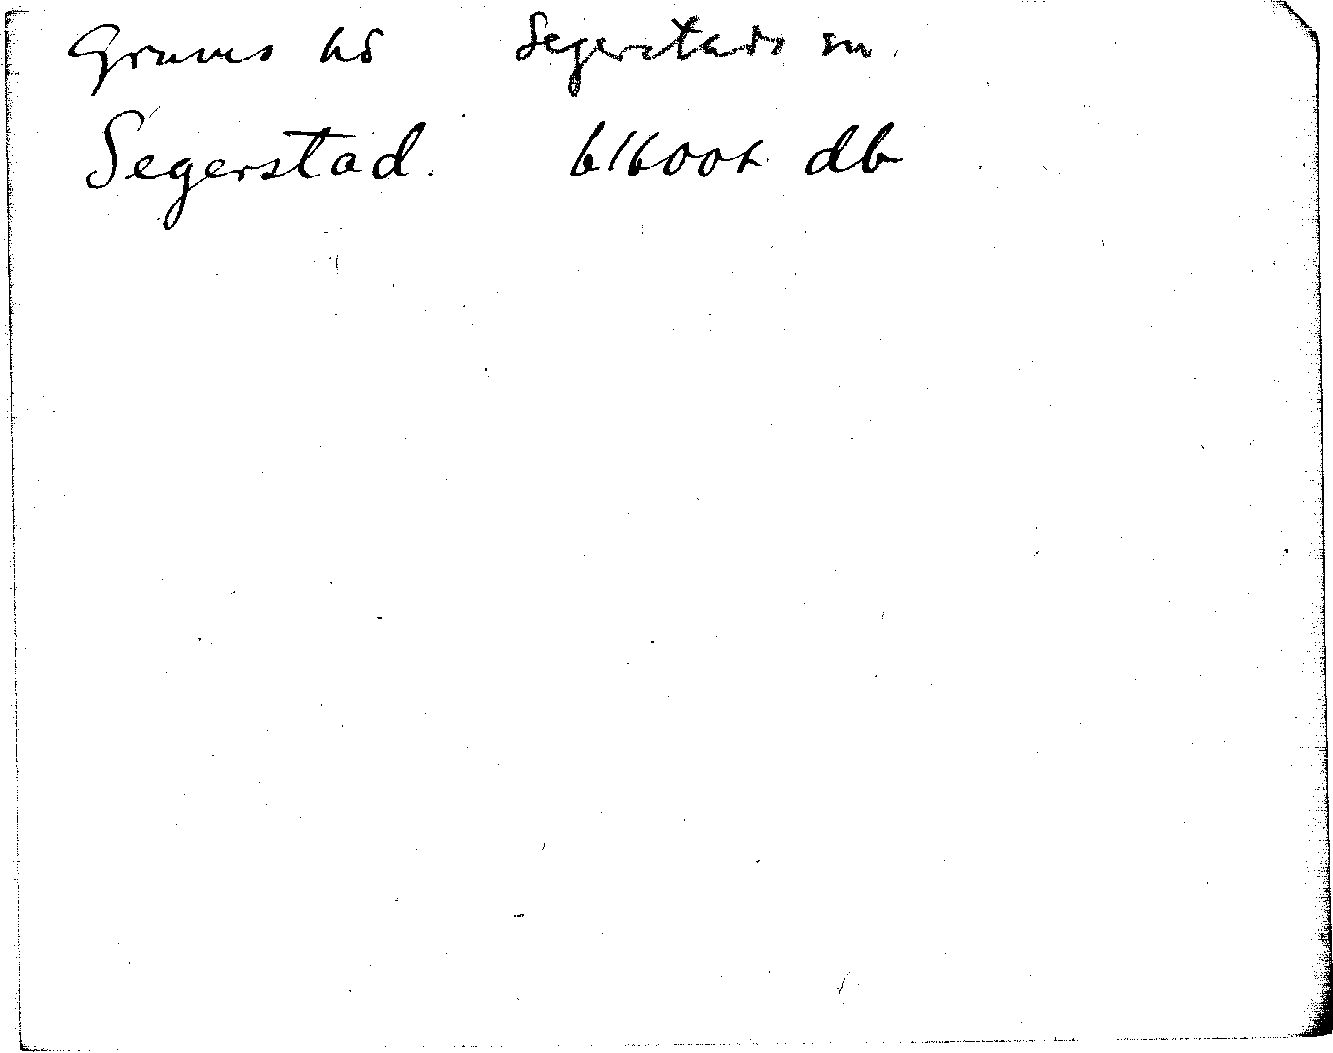 Grums hd Segerstads sn.
Segerstad. db